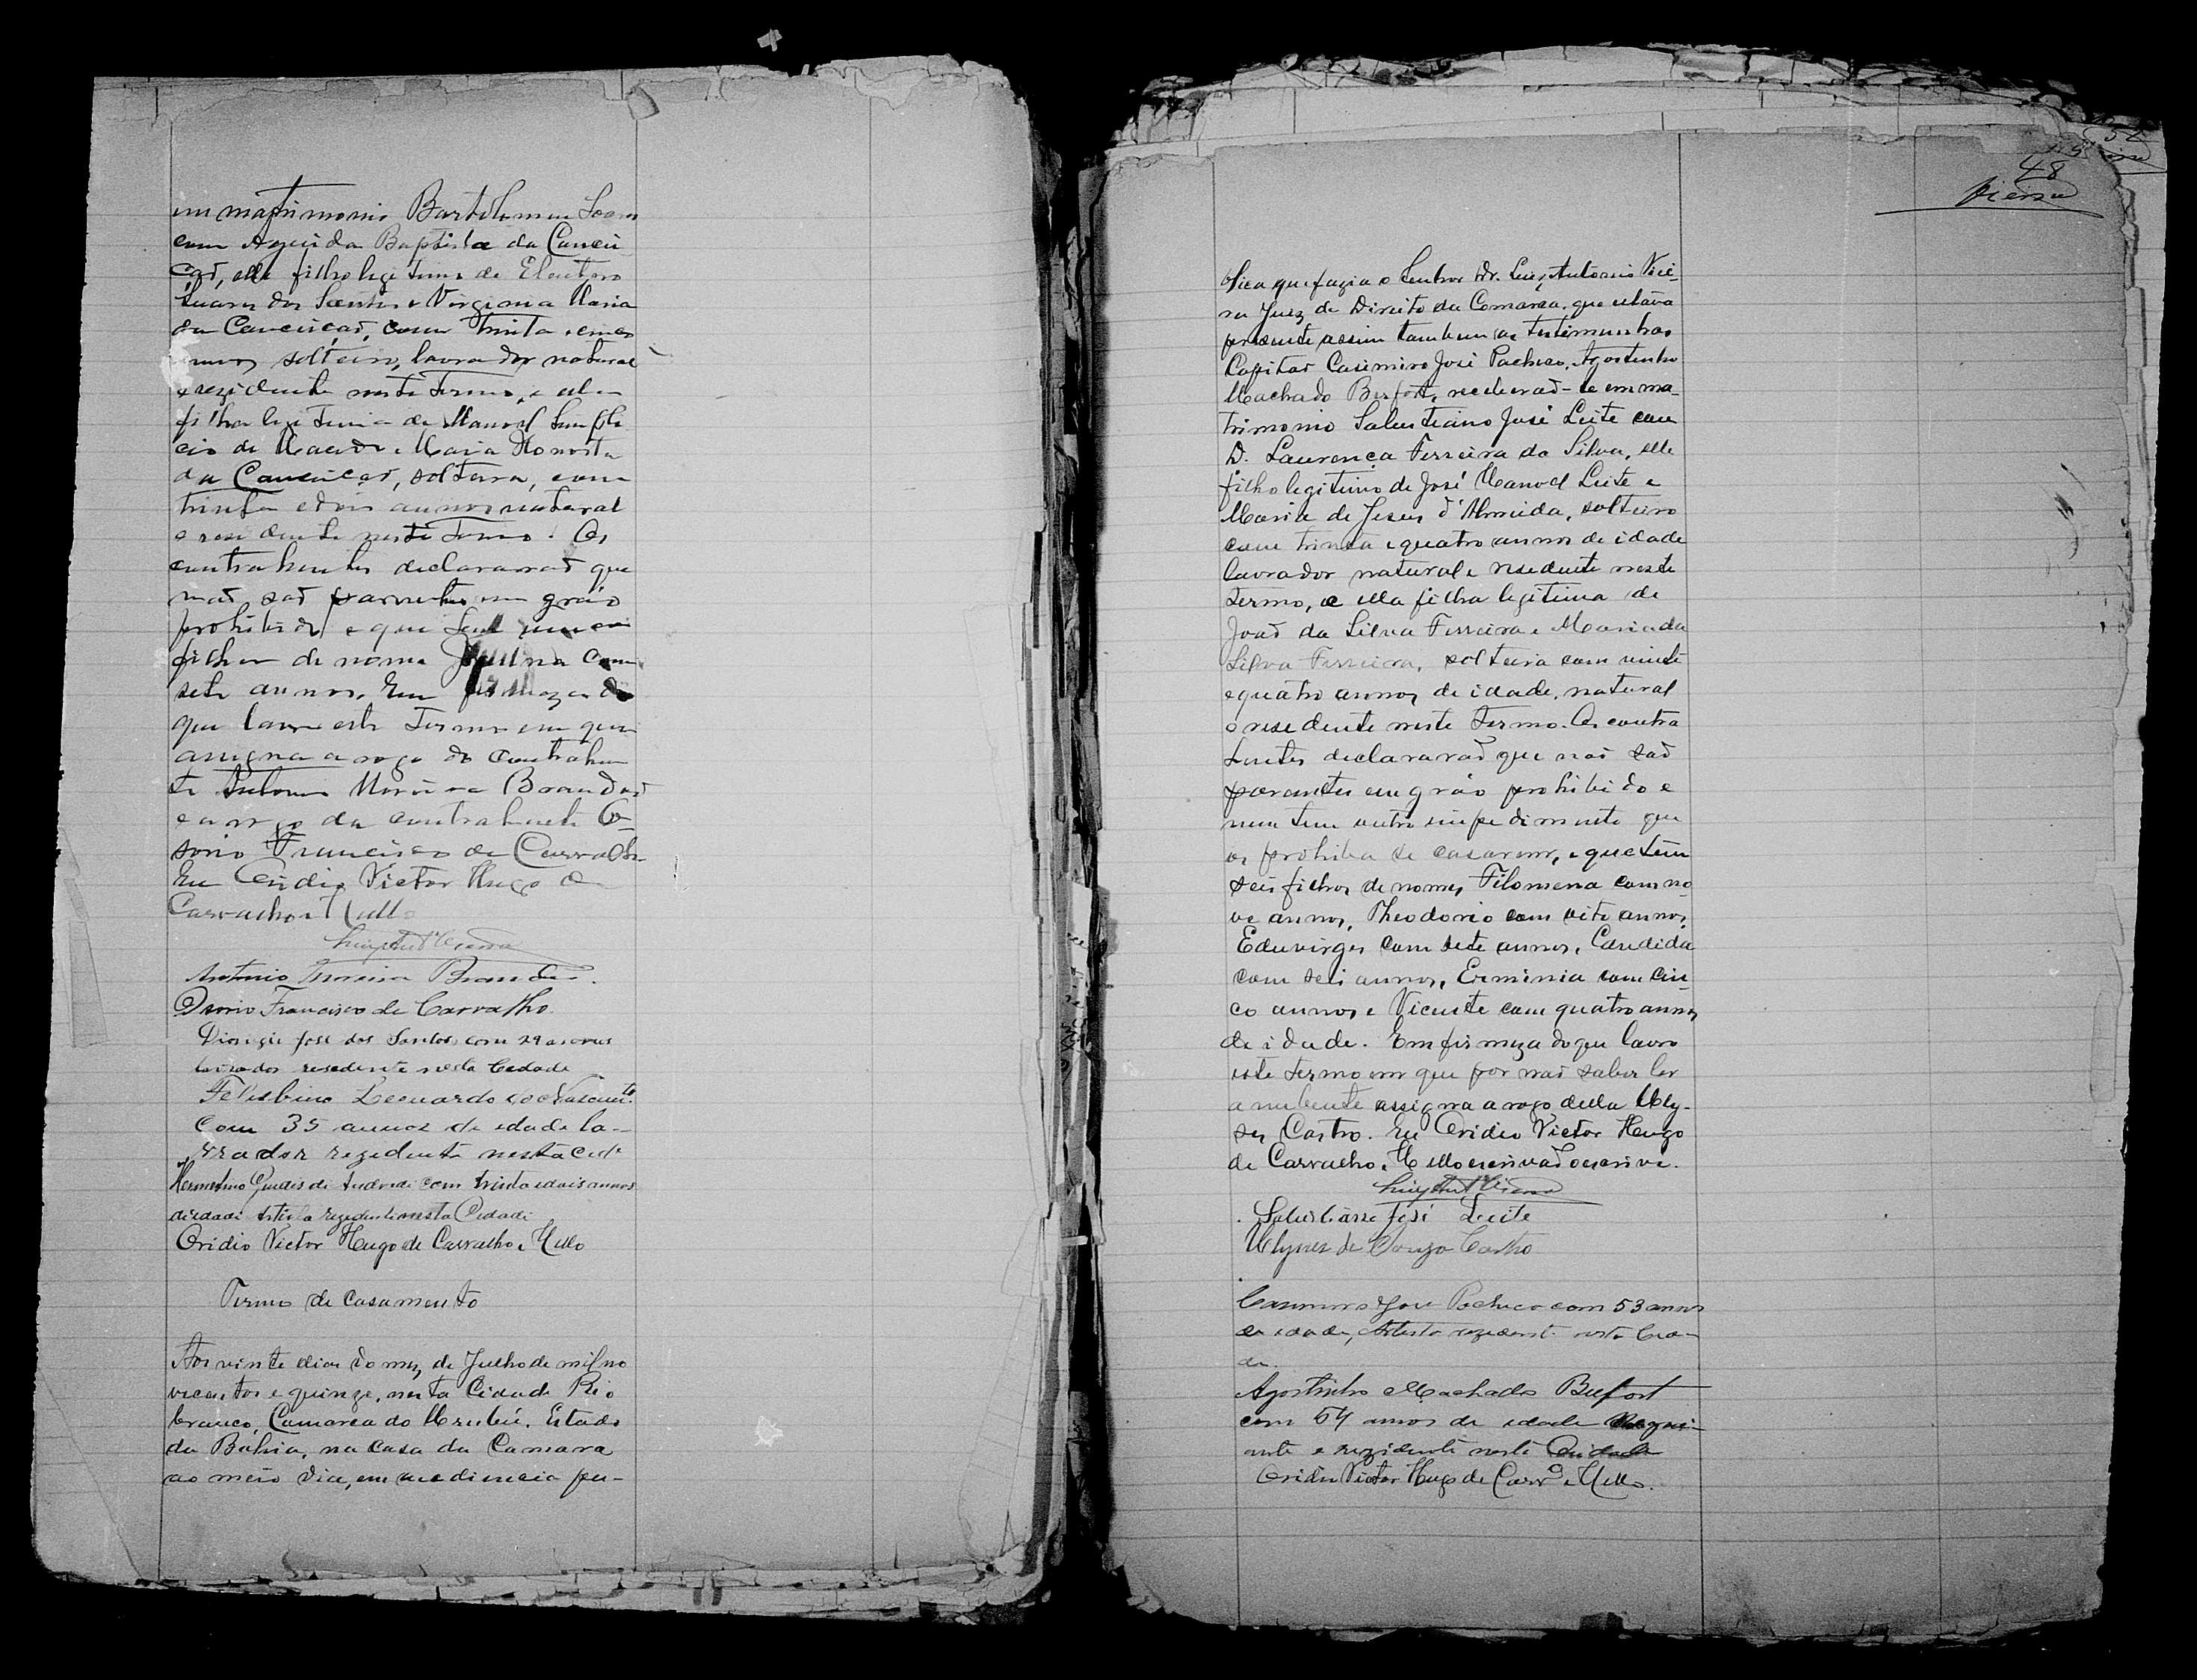 em matrimonio Bartholomeu Soares
com Aguida Baptista da Concei
çaõ, elle filho legitimo de Eleuterio
Suares dos Santos e Virginia Maria
da Conceiçaõ, com trinta e cinco
annos solteiro, lavrador natural
e rezidente neste termo, e ella
filha legitima de Manoel Simpli
cio de Macedo e Maria Honorata
da Conceiçaõ, solteira, com
trinta e dois annos natural
e residente neste termo. Os
contrahentes declararaõ que
naõ saõ parentes em gráo
prohibido e que tem uma
filha de nome com
sete annos. Em firmeza do
que lavro este termo em que
assigna a rogo do contrahen
te Antonio Moreira Brandaõ
e a rogo da contrahente O-
sorio Francisco de Carvalho
Eu Ovidio Victor Hugo de
Carvalho e Mello
Luiz Antº Vieira
Antonio Moreira Brandão.
Osorio Francisco de Carvalho.
Dionizio José dos Santos com 29 annos
lavrador residente nesta Cedade
Felisbino Leonardo do Nascimtº
com 35 annos de edade la-
vrador rezidente nesta Cide
Hermelino Guedes de Andrade com trinta e dois annos
de edade Artista rezidente nesta Cidade
Ovidio Victor Hugo de Carvalho e Mello
Termo de Casamento
Aos vinte dias do mez de Julho de mil no
vecentos e quinze, nesta Cidade Rio
branco, Comarca do Urubú, Estado
da Bahia, na casa da Camara
ao meio dia, em audiencia pu-
48
Vieira
blica que fazia o Senhor Dr. Luiz Antonio Viei-
ra Juiz de Direito da Comarca, que estava
presente assim tambem as testimunhas
Capitaõ Casimiro José Pacheco, Agostinho
Machado Befort, receberaõ-se em ma-
trimonio Salustiano José Leite com
D. Laurença Ferreira da Silva, elle
filho legitimo de José Manoel Leite e
Maria de Jesus d'Almeida, solteiro
com trinta e quatro annos de idade
lavrador natural e residente neste
termo, e ella filha legitima de
Joaõ da Silva Ferreira e Maria da
Silva Ferreira, solteira com vinte
e quatro annos de idade, natural
e residente neste termo. Os contra
hentes declararaõ que naõ saõ
parentes em gráo prohibido e
nem tem outro impedimento que
os prohiba se casarem, e que tem
seis filhos de nomes Filomena com no
ve annos, Theodorio com oito annos,
Eduvirges com sete annos, Candida
com seis annos, Erminia com cin-
co annos e Vicente com quatro annos
de idade. Em firmeza do que lavro
este termo em que por naõ saber ler
a nubente assigna a rogo della Uly-
ses Castro. Eu Ovidio Victor Hugo
de Carvalho e Mello escrivaõ o escrivi.
Luiz Antº Vieira
Salustiano José Leite
Ulysses de Souza Castro
Casimiro José Pacheco com 53 annos
de edade, Artista rezidente nesta Cida-
de.
Agostinho Machado Befort
com 54 annos de edade Negoci-
ante e rezidente nesta Cidade
Ovidio Victor Hugo de Carvº e Mello.